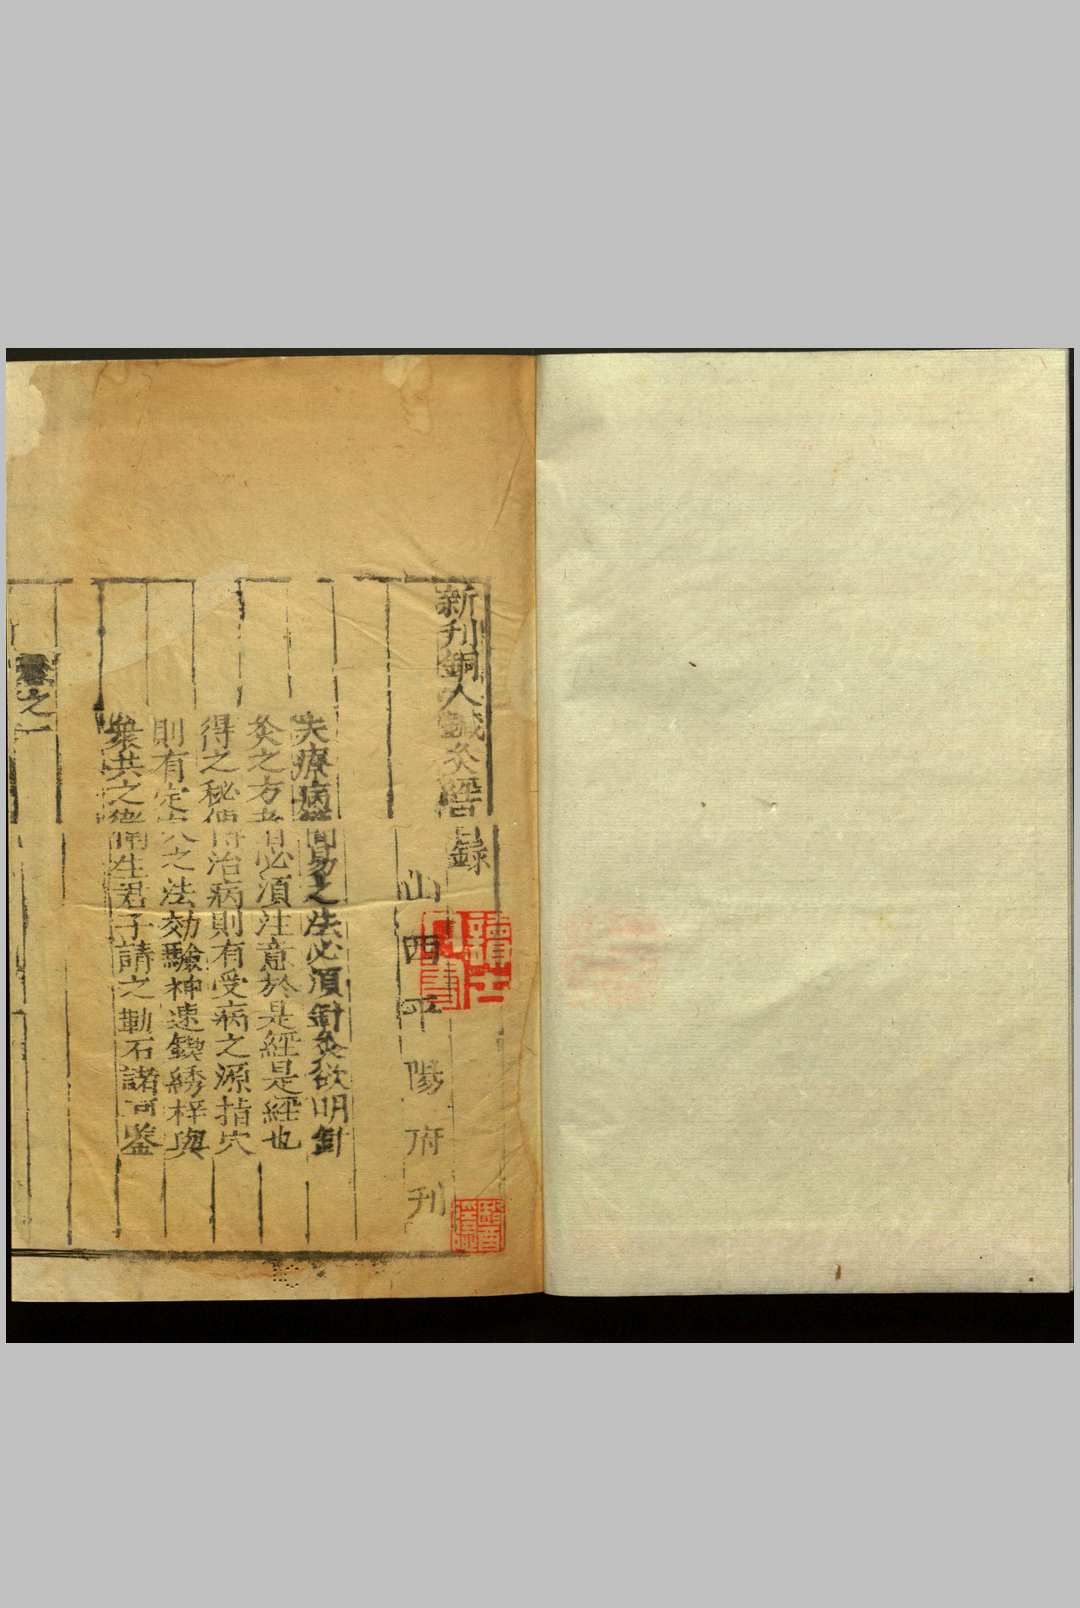 新刊銅人鍼灸經目錄
山西平陽府刊
夫療病簡易之法必須針灸欲明針
灸之方者必須注意於是經是經也
得之秘便得治病則有受病之源指穴
則有定穴之法効驗神速鍥綉梓與
衆共之衛生君子請之勒石諸可鉴
卷之一
讀士